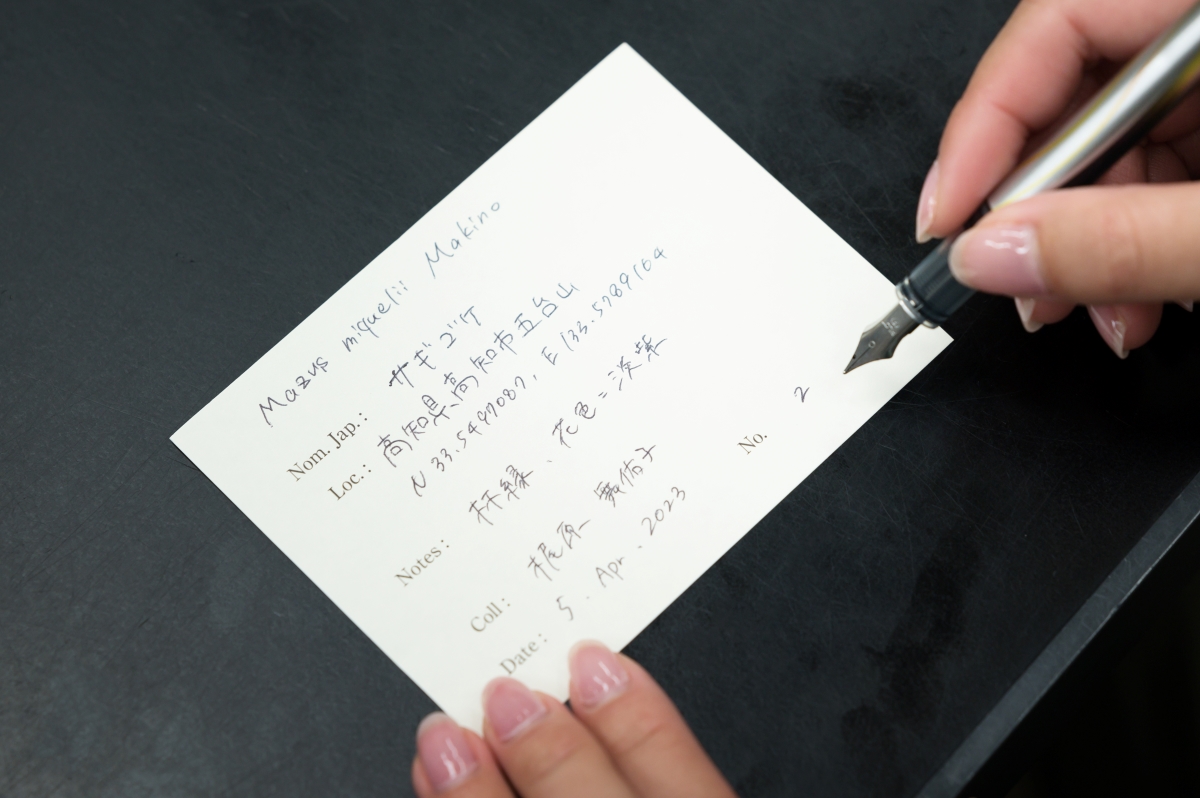 Mazus miquelii Makino
Nom. Jap.: サギゴケ
Loc.: 高知県高知市五台山
N 33.5497087, E 133.5789164
Notes: 林縁、花色=淡紫
Coll: 梶原 舞佑子
No. 2
Date: 5. Apr. 2023